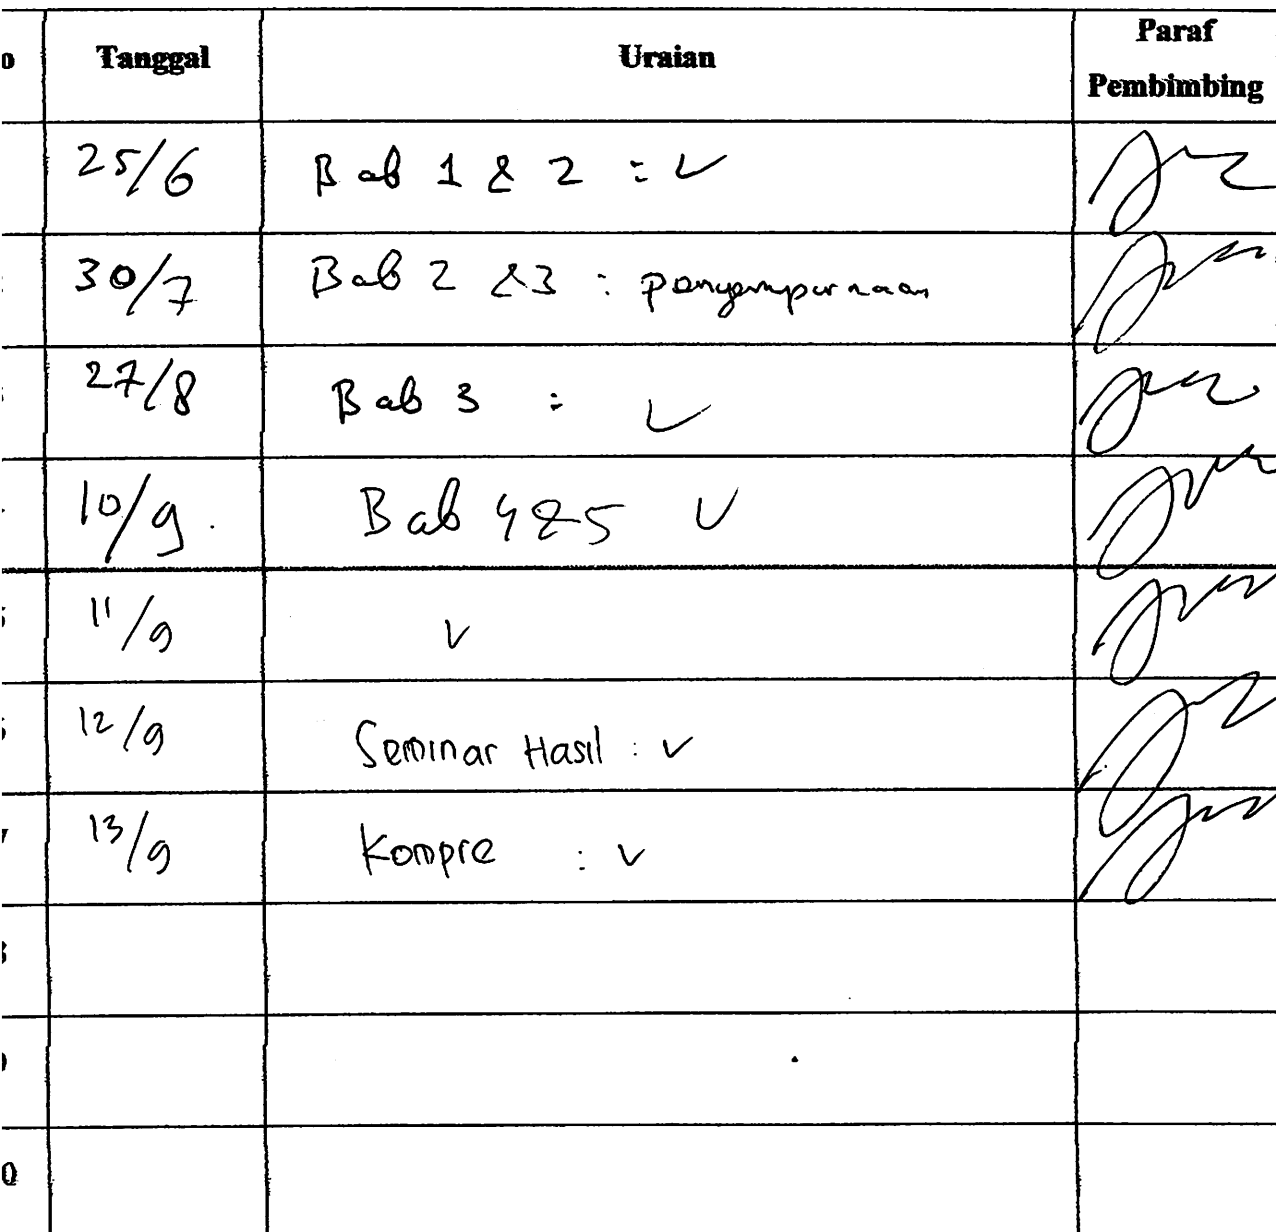 o Tanggal Uraian Paraf Pembimbing
25/6 Bab 1 & 2 : ✓
30/7 Bab 2 & 3 : penyempurnaan
27/8 Bab 3 : ✓
10/9 Bab 4 & 5 ✓
11/9 ✓
12/9 Seminar Hasil : ✓
13/9 Kompre : ✓
0